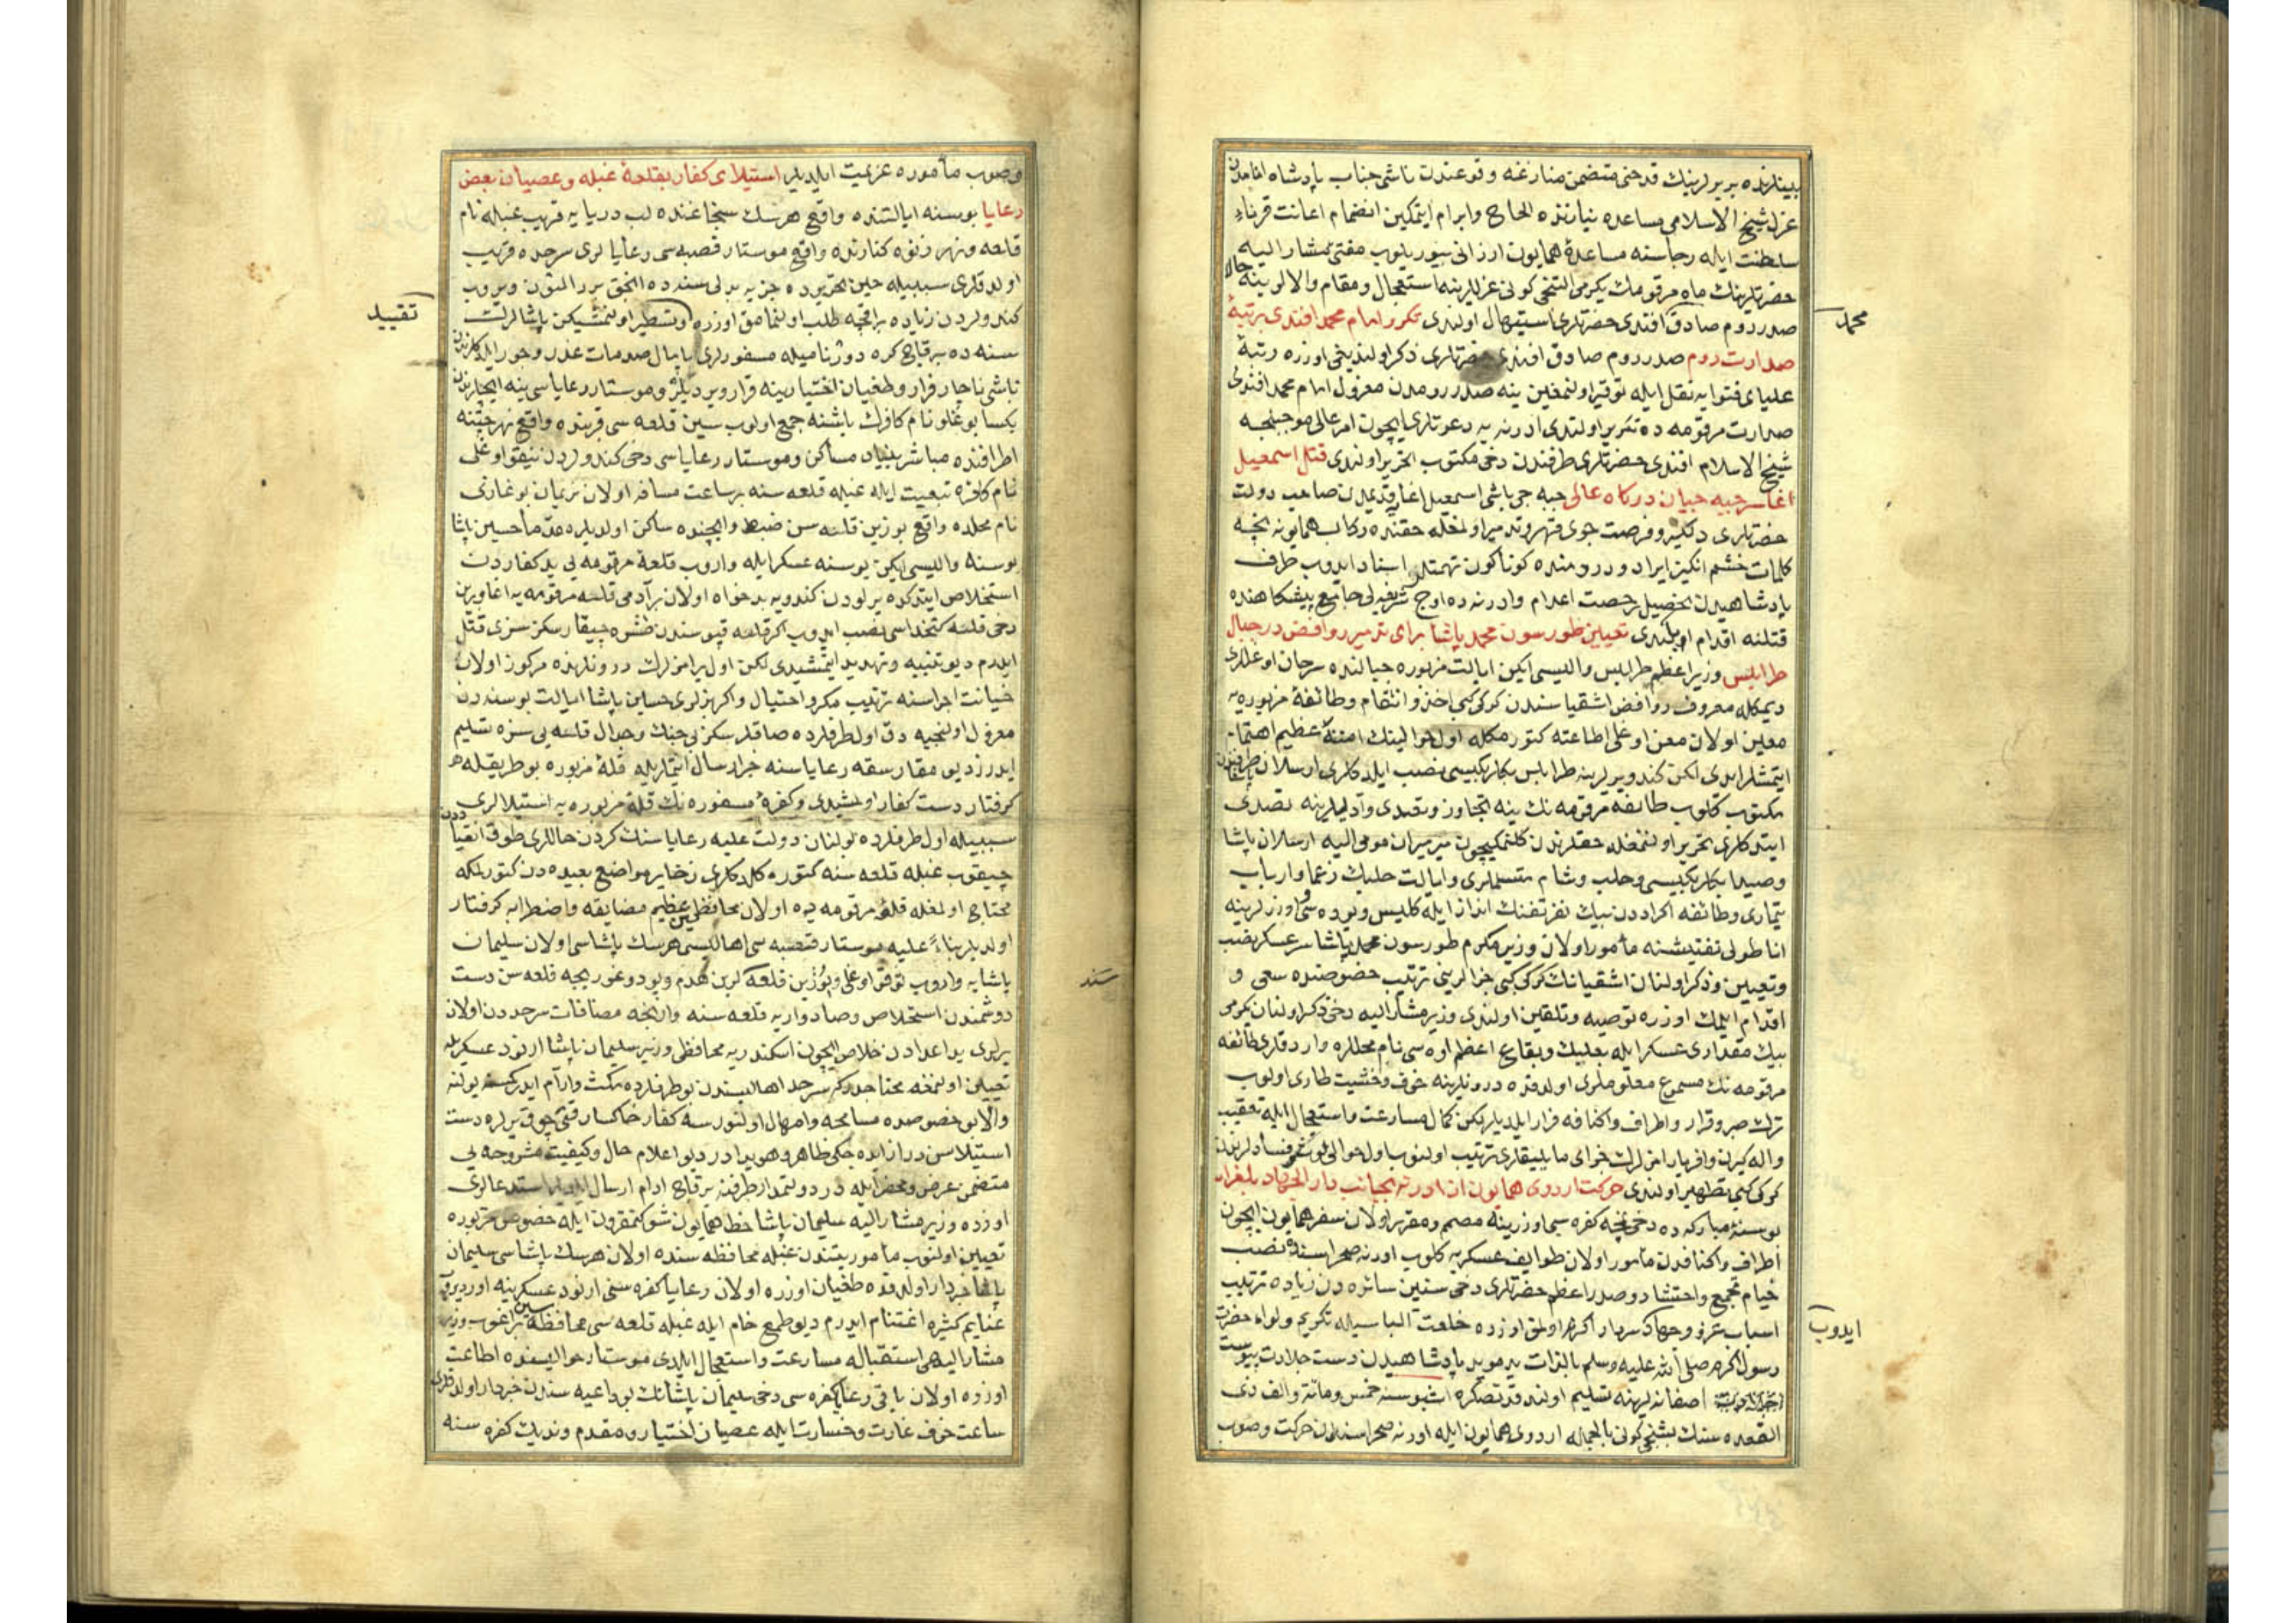 بينلرنده بربرلرينك قدحنى متضمن منازعه وقوعندن ناشى جناب پادشاه انامدن
عزل شيخ الاسلامى مساعده نيازنده الحاح وابرام ايتمكين انضمام اعانت قرناء
سلطنت ايله رجاسنه مساعدۀ همايون ارزانى بيوريلوب مفتئ مشار اليه
حضرتلرينك ماه مرقومك يكرمى التنجى كونى عزللرينه استعجال ومقام والالرينه حالا
صدر روم صادق افندى حضرتلرى استقبال اولندى تكرر امام محمد افندى برتبۀ
صدارت روم صدر روم صادق افندى حضرتلرى ذكر اولنديغى اوزره رتبۀ
علياى فتوايه نقل ايله توقير اولنمغين ينه صدر رومدن معزول امام محمد افندى
صدارت مرقومه ده تقرير اولندى ادرنه يه دعوتلرى ايچون امر عالى موجبنجه
شيخ الاسلام افندى حضرتلرى طرفندن دخى مكتوب تحرير اولندى قتل اسمعيل
اغا سر جبه جيان دركاه عالى جبه جى باشى اسمعيل اغا قديمدن صاحب دولت
حضرتلرى دلكير وفرصت جوى قهر وتدمير اولمغله حقنده ركاب همايونه نچه
كلمات خشم انكيز ايراد ودرومنده كوناكون تهمتلر اسناد ايدوب طرف
پادشاهيدن تحصيل رخصت اعدام وادرنه ده اوج شرفه لى جامع پيشكاهنده
قتلنه اقدام اولندى تعيين طورسون محمد پاشا براى تدمير روافض در جبال
طرابلس وزير اعظم طرابلس واليسى ايكن ايالت مزبوره جبالنده سرحان اوغللرى
ديمكله معروف روافض اشقياسندن كركى كبى اخذ وانتقام وطائفۀ مزبوره يه
معين اولان معن اوغلى اطاعته كتورمكله اول حوالينك امننه عظيم اهتمام
ايتمشلر ايدى لكن كندو يرلرينه طرابلس بكلربكيسى نصب ايلدكلرى ارسلان پاشا طرفندن
مكتوب كلوب طائفۀ مرقومه نك ينه تجاوز وتعدى واذيتلرينه تصدى
ايتدكلرى تحرير اولنمغله حقلرندن كلنمكيچون ميرميران مومى اليه ارسلان پاشا
وصيدا بكلربكيسى وحلب وشام متسلملرى وايالت حلبك زعما وارباب
تيمارى وطائفه اكراددن بيك نفر تفنك انداز ايله كليس ويوده سى اوزرلرينه
اناطولى تفتيشنه مأمور اولان وزير مكرم طورسون محمد پاشا سرعسكر نصب
وتعيين وذكر اولنان اشقيانك كركى كبى جزالرينى ترتيب خصوصنده سعى و
اقدام ايلمك اوزره توصيه وتلقين اولندى وزير مشار اليه دخى ذكر اولنان يكرمى
بيك مقدارى عسكر ايله بعلبك وبقاع اعظم اوه سى نام محللره واردقلرى طائفه
مرقومه نك مسموع معلوملرى اولدقده درونلرينه خوف وخشيت طارى اولوب
ترك صبر وقرار واطراف واكنافه فرار ايلديلر ليكن كمال مسارعت واستعجال ايله تعقيب
واله كيرن وافرياراملرك جزاى مايليقلرى ترتيب اولنوب اول حوالى لوث شر وفسادلرندن
كركى كبى تطهير اولندى حركت اردوى همايون از ادرنه بجانب دار الجهاد بلغراد
بو سنۀ مباركه ده دخى نچه كفره سى اوزرينه مصمم ومقرر اولان سفر همايون ايچون
اطراف واكنافدن مأمور اولان طوايف عسكريه كلوب ادرنه صحراسنده نصب
خيام تجمع واحتشاد وصدر اعظم حضرتلرى دخى سنين سائره دن زياده ترتيب
اسباب غزو وجهادۀ سردار اكرم اولمق اوزره خلعت الباسيله تكريم ولواء حضرت
رسول اكرم صلى الله عليه وسلم بالذات يد مويد پادشاهيدن دست جلادت پيوست
اصفانه لرينه تسليم اولندقدنصكره اشبو سنه خمس ومائة والف ذى
القعده سنك بشنجى كونى بالجمله اردوى همايون ايله ادرنه صحراسندن حركت وصوب
محمد
ايدوب
وصوب مأموره عزيمت ايلديلر استيلاى كفار بقلعۀ غبله وعصيان بعض
رعايا بوسنه ايالتنده واقع هرسك سنجاغنده لب دريايه قريب غبله نام
قلعه ونهر نفره كنارنده واقع موستار قصبه سى رعايالرى سرحده قريب
اولدقلرى سببيله حين تحريرده جزيه بدلى سنه ده انجق برر التون ويروب
كندولردن زياده بر اقچه طلب اولنمامق اوزره وتسطير اولنمشيكن پاشالرك
سنه ده بر قاچ كره دورناميله مسفورلرى پايمال صدمات غدر وجور ايلدكلرندن
ناشى ناچار فرار وطغيان اختيارينه قرار ويرديلر وموستار رعاياسى ينه ايچلرندن
يكسا بوغلو نام كافرك باشنه جمع اولوب سين قلعه سى قربنده واقع نهر چتنه
اطرافنده مباشر بنياد مساكن وموستار رعاياسى دخى كندولردن نيقو اوغلى
نام كافره تبعيت ايله غبله قلعه سنه بر ساعت مسافه اولان نريمان بوغازى
نام محلده واقع بوزين قلعه سن ضبط وايچنده ساكن اولديلر مقدما حسين پاشا
بوسنه واليسى ايكن بوسنه عسكر ايله واروب قلعۀ مرقومه يى يد كفاردن
استخلاص ايتدكده يرلودن كندويه بدخواه اولان بر آدمى قلعه مرقومه يه اغا وبرين
دخى قلعه كتخداسى نصب ايدوب اكر قلعه قپوسندن طشره چيقارسكز سزى قتل
ايدرم ديو تنبيه وتهديد ايتمشيدى لكن اول يرامزلرك درونلرنده مركوز اولان
خيانت اجراسنه ترتيب مكر واحتيال واكر بزلرى حسين پاشا ايالت بوسنه دن
معزول اولنجيه دك اول طرفلرده صاقلرسكز بى جنك وجدال قلعه يى سزه تسليم
ايدرز ديو مقارسقه رعاياسنه خبر ارسال ايتملريله قلعۀ مزبوره بو طريقله
كرفتار دست كفار اولمشيدى وكفرۀ مسفوره نك قلعۀ مزبوره يه استيلالرى
سببيله اول طرفلرده بولنان دولت عليه رعاياسنك كردن حاللرى طوق انقياددن
چيقوب غبله قلعه سنه كتوره كلدكلرى ذخاير مواضع بعيده دن كتورلمكه
محتاج اولمغله قلعۀ مرقومه ده اولان محافظلرين عظيم مضايقه واضطرابه كرفتار
اولديلر بناء عليه موستار قصبه سى اهاليسى هرسك پاشاسى اولان سليمان
پاشايه واروب نوقو اوغلى وبوزين قلعه لرين هدم وبودوغوريجه قلعه سن دست
دوشمندن استخلاص وصادواريه قلعه سنه وارنجه مضافات سرحددن اولان
يرلرى يد اعدادن خلاص ايچون اسكندريه محافظى وزير سليمان پاشا ارنود عسكريله
تعيين اولنمغه محتاجدر كه سرحد اهاليسندن بو طرفلرده مكث وآرام ايدر كمسنه بولنه
والا بو خصوصده مسامحه وامهال اولنورسه كفار خاكسار قتى چوق يرلره دست
استيلاسن دراز ايده جكى ظاهر وهويدادر ديو اعلام حال وكيفيت مشروحه يى
متضمن عرض ومحضر ايله در دولتمدار طرفنه بر قاچ ادم ارسال استدعالرى
اوزره وزير مشار اليه سليمان پاشا خط همايون شوكتمقرون ايله خصوص مزبوره
تعيين اولنوب مأموريتندن غبله محافظه سنده اولان هرسك پاشاسى سليمان
پاشا خبردار اولدقده طغيان اوزره اولان رعايا كفره سنى ارنود عسكرينه اورديروب
غنايم كثيره اغتنام ايدرم ديو طمع خام ايله غبله قلعه سى محافظه سين براغوب وزير
مشار اليهى استقباله مسارعت واستعجال ايلدى موستار حواليسنده اطاعت
اوزره اولان باقى رعايا كفره سى دخى سليمان پاشانك بو داعيه سندن خبردار اولدقلرى
ساعت خوف غارت وخسارت ايله عصيان اختيار ومقدم ونديك كفره سنه
تقييد
سند